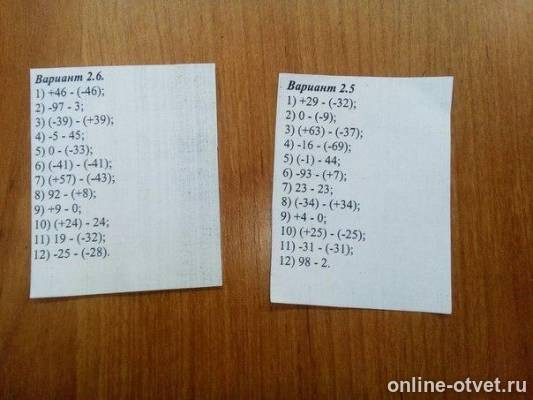 Вариант 2.6.
1) +46 - (-46);
2) -97 - 3;
3) (-39) - (+39);
4) -5 - 45;
5) 0 - (-33);
6) (-41) - (-41);
7) (+57) - (-43);
8) 92 - (+8);
9) +9 - 0;
10) (+24) - 24;
11) 19 - (-32);
12) -25 - (-28).
Вариант 2.5
1) +29 - (-32);
2) 0 - (-9);
3) (+63) - (-37);
4) -16 - (-69);
5) (-1) - 44;
6) -93 - (+7);
7) 23 - 23;
8) (-34) - (+34);
9) +4 - 0;
10) (+25) - (-25);
11) -31 - (-31);
12) 98 - 2.
online-otvet.ru